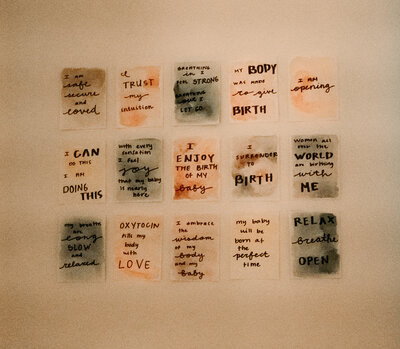 I am
safe
secure
and
loved
I
TRUST
my
intuition
BREATHING
in I
feel STRONG
breathing
out I
LET GO
MY BODY
WAS MADE
to give
BIRTH
I AM
opening
I CAN
DO THIS
I AM
DOING
THIS
with every
sensation
I feel
joy
that my baby
is nearly
here
I
ENJOY
THE BIRTH
OF MY
baby
I
SURRENDER
TO
BIRTH
WOMEN ALL
over the
WORLD
are birthing
with
ME
my breaths
are
long
SLOW
and
relaxed
OXYTOCIN
fills my
body
with
LOVE
I embrace
the
wisdom
of my
body
and my
baby
my baby
will be
born at
the
perfect
time
RELAX
breathe
OPEN